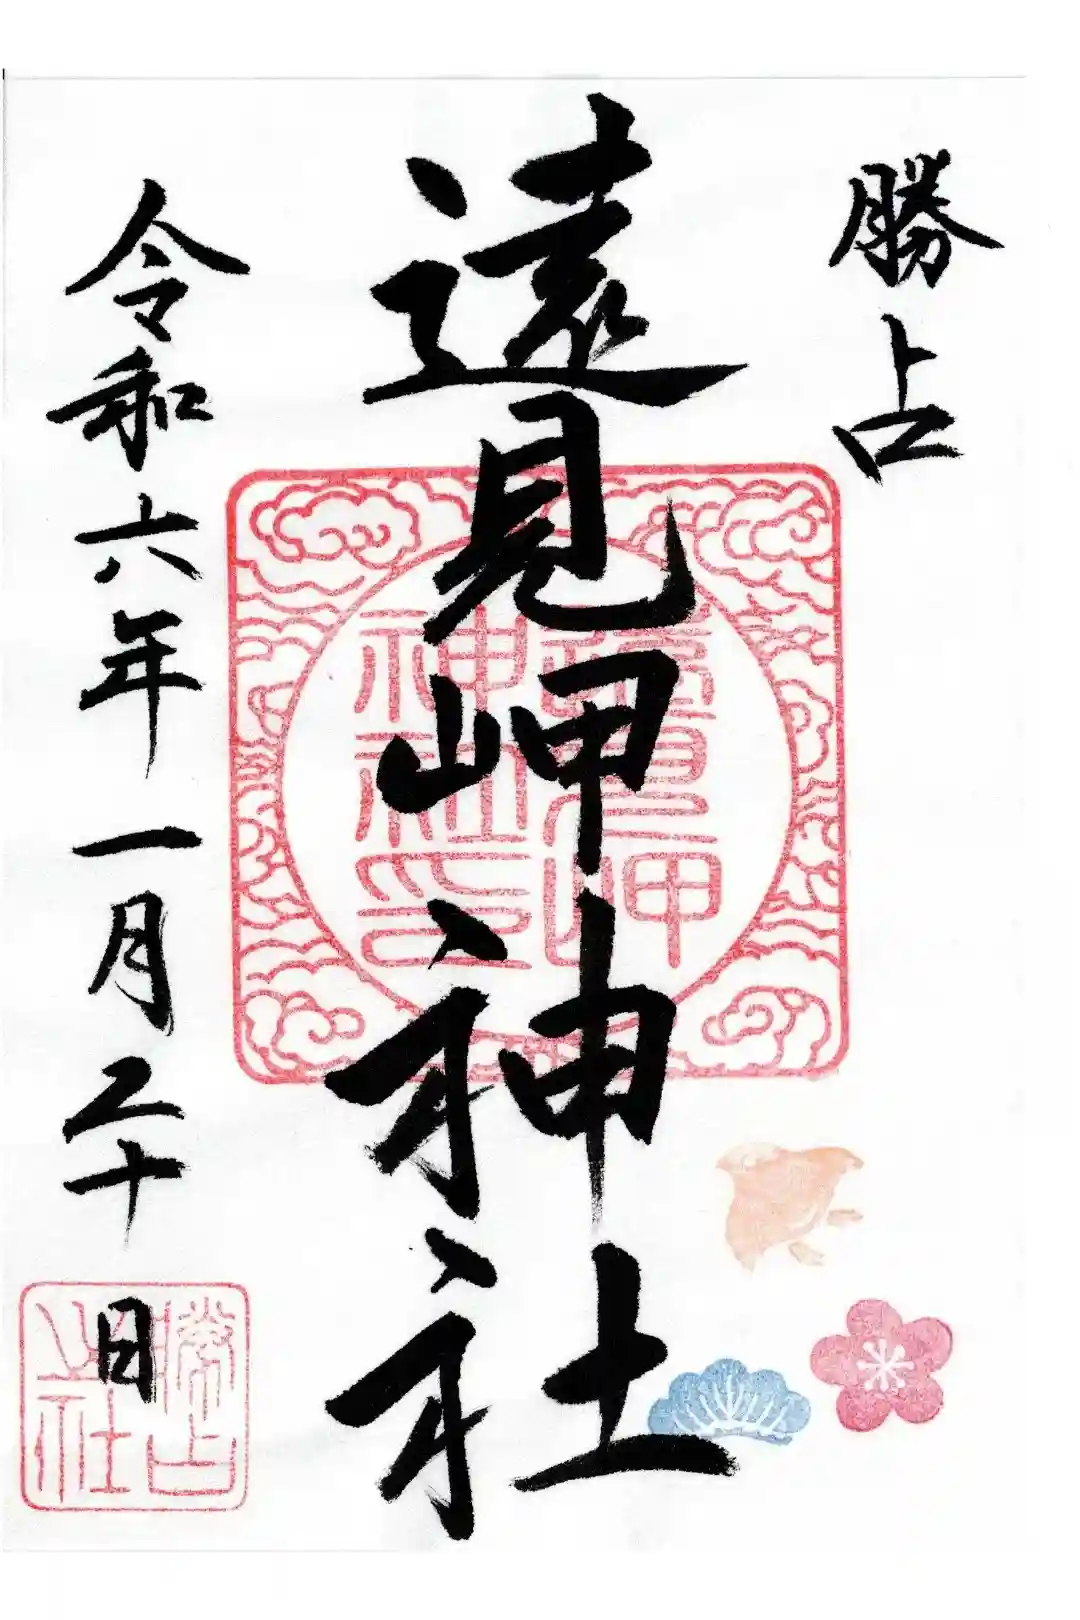 勝占
遠見岬神社
令和六年一月二十日
遠見岬
神社印
勝占
之社